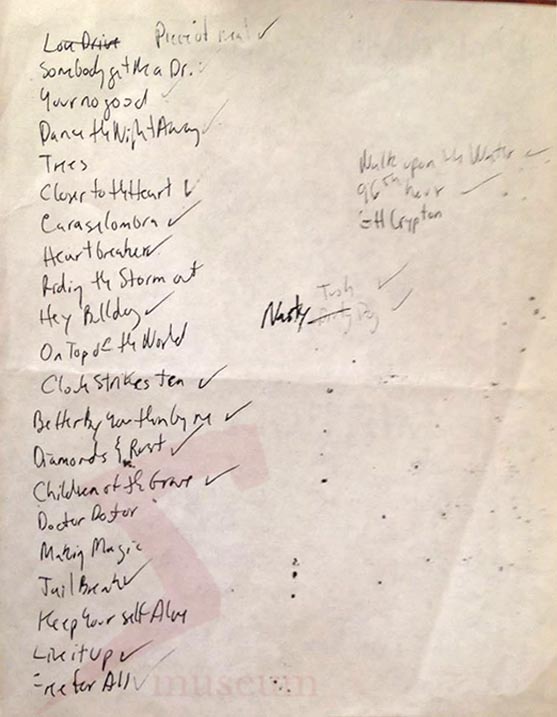 Love Drive Piece of meat ✓
Somebody get me a Dr.
Your no good
Dance the Night Away ✓
Trees
Closer to the Heart ✓
Caraselombra ✓
Heartbreaker ✓
Riding the Storm out
Hey Bulldog ✓
On Top of the World
Clock Strikes Ten ✓
Better by You than by me ✓
Diamonds & Rust ✓
Children of the Grave ✓
Doctor Doctor
Making Magic
Jail Break ✓
Keep Your self Alive
Like it Up ✓
Free for All ✓
Walk upon the Water ✓
96th hour ✓
EH Crypton
Tush ✓
Nasty Dirty Dog ✓
museum